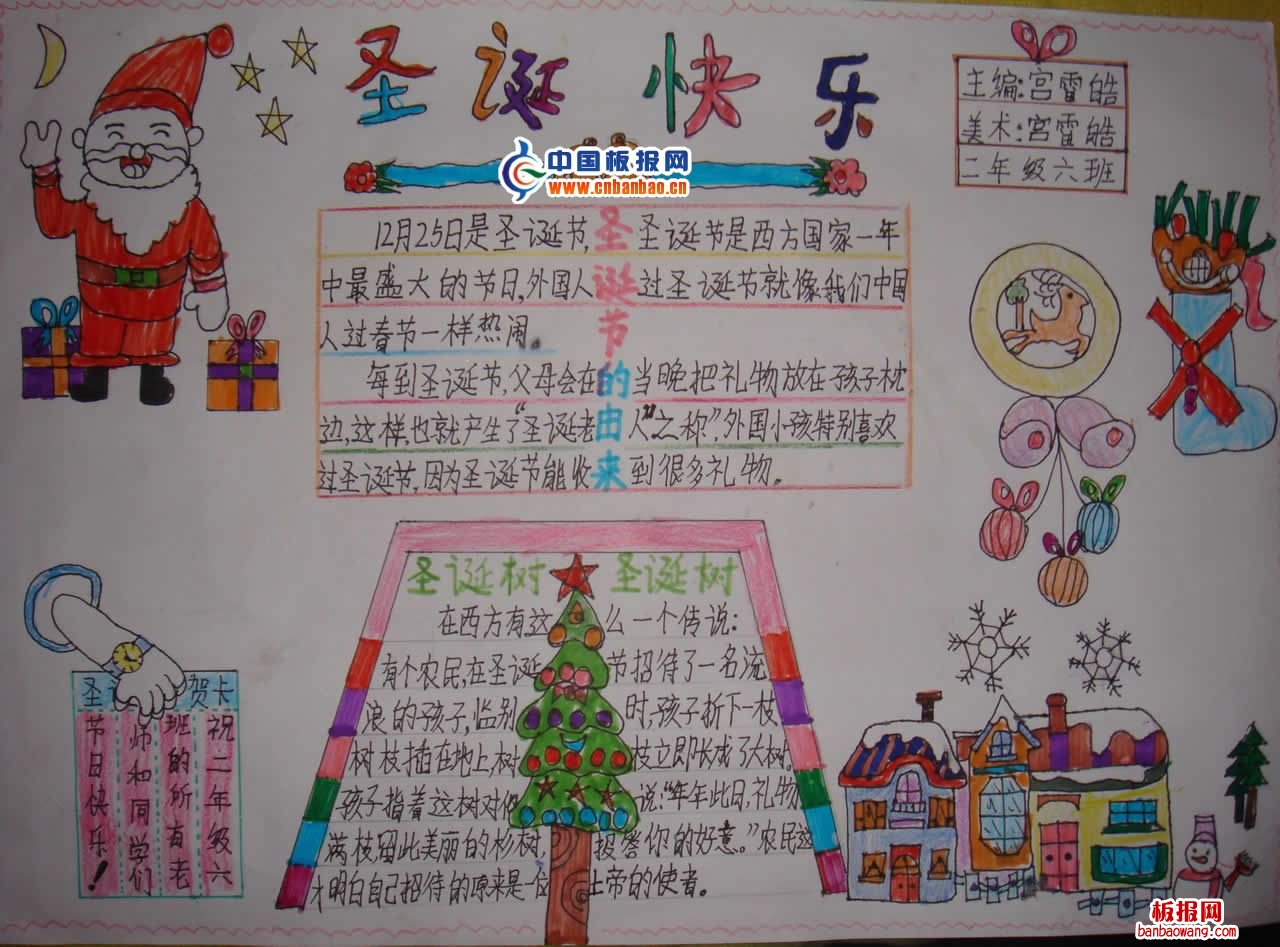 圣诞快乐
中国板报网
www.cnbanbao.cn
主编:宫雷皓
美术:宫雷皓
二年级六班
圣诞节的由来
12月25日是圣诞节,圣诞节是西方国家一年
中最盛大的节日,外国人过圣诞节就像我们中国
人过春节一样热闹。
每到圣诞节,父母会在当晚把礼物放在孩子枕
边,这样,也就产生了“圣诞老人”之称”,外国小孩特别喜欢
过圣诞节,因为圣诞节能收到很多礼物。
圣诞树 圣诞树
在西方有这么一个传说:
有个农民,在圣诞节招待了一名流
浪的孩子,临别时,孩子折下一枝
树枝插在地上,树枝立即长成了大树。
孩子指着这树对他说:“年年此日,礼物
满枝,留此美丽的杉树,报答你的好意。”农民这
才明白自己招待的原来是一位上帝的使者。
圣 贺卡
祝二年级六
班的所有老
师和同学们
节日快乐!
板报网
banbaowang.com